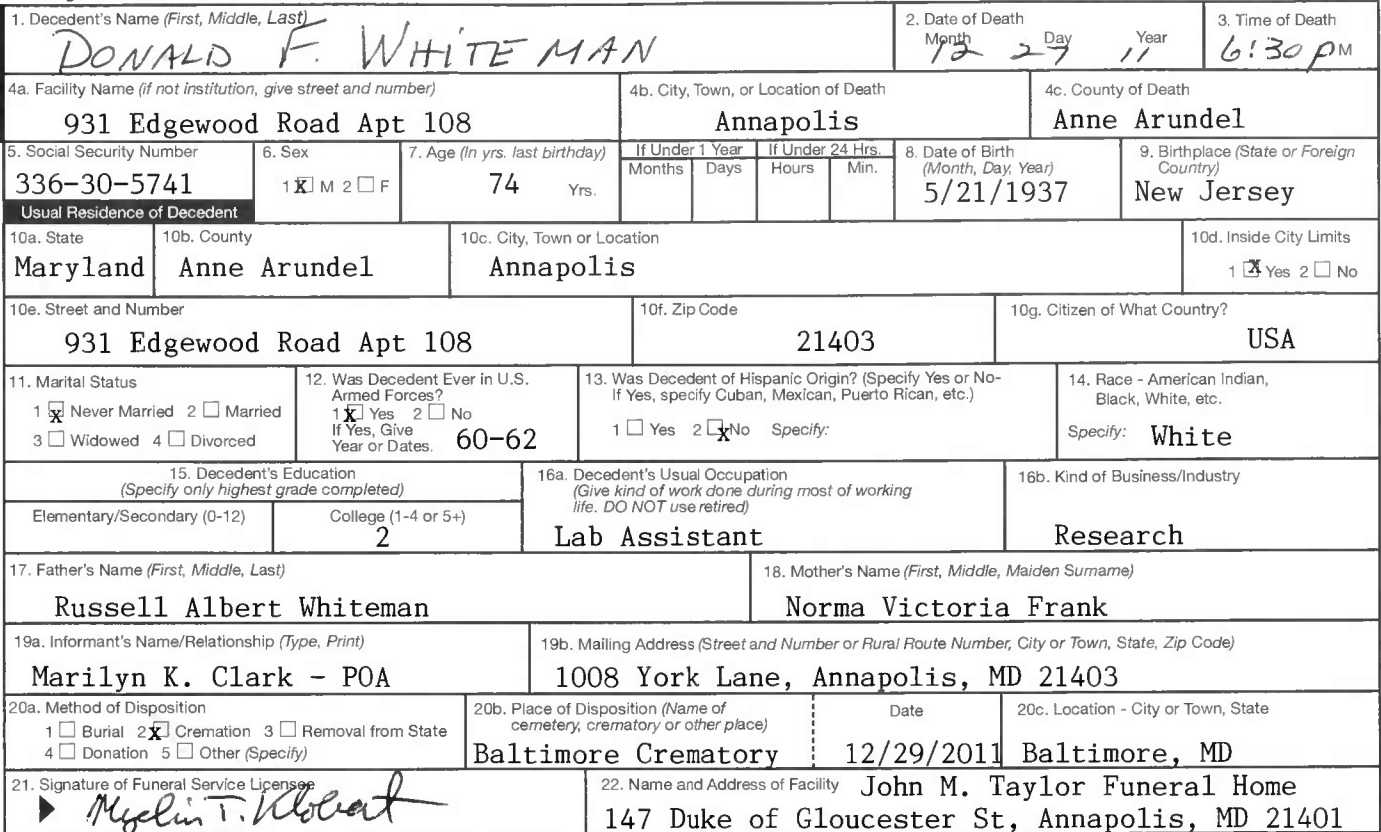 1. Decedent's Name (First, Middle, Last)
DONALD F. WHITEMAN
2. Date of Death
Month Day Year
12 27 11
3. Time of Death
6:30 PM
4a. Facility Name (if not institution, give street and number)
931 Edgewood Road Apt 108
4b. City, Town, or Location of Death
Annapolis
4c. County of Death
Anne Arundel
5. Social Security Number
336-30-5741
6. Sex
1 X M 2 F
7. Age (In yrs. last birthday)
74 Yrs.
If Under 1 Year If Under 24 Hrs.
Months Days Hours Min.
8. Date of Birth
(Month, Day, Year)
5/21/1937
9. Birthplace (State or Foreign
Country)
New Jersey
Usual Residence of Decedent
10a. State
Maryland
10b. County
Anne Arundel
10c. City, Town or Location
Annapolis
10d. Inside City Limits
1 X Yes 2 No
10e. Street and Number
931 Edgewood Road Apt 108
10f. Zip Code
21403
10g. Citizen of What Country?
USA
11. Marital Status
1 X Never Married 2 Married
3 Widowed 4 Divorced
12. Was Decedent Ever in U.S.
Armed Forces?
1 X Yes 2 No
If Yes, Give
Year or Dates. 60-62
13. Was Decedent of Hispanic Origin? (Specify Yes or No-
If Yes, specify Cuban, Mexican, Puerto Rican, etc.)
1 Yes 2 X No Specify:
14. Race - American Indian,
Black, White, etc.
Specify: White
15. Decedent's Education
(Specify only highest grade completed)
Elementary/Secondary (0-12)
College (1-4 or 5+)
2
16a. Decedent's Usual Occupation
(Give kind of work done during most of working
life. DO NOT use retired)
Lab Assistant
16b. Kind of Business/Industry
Research
17. Father's Name (First, Middle, Last)
Russell Albert Whiteman
18. Mother's Name (First, Middle, Maiden Surname)
Norma Victoria Frank
19a. Informant's Name/Relationship (Type, Print)
Marilyn K. Clark - POA
19b. Mailing Address (Street and Number or Rural Route Number, City or Town, State, Zip Code)
1008 York Lane, Annapolis, MD 21403
20a. Method of Disposition
1 Burial 2 X Cremation 3 Removal from State
4 Donation 5 Other (Specify)
20b. Place of Disposition (Name of
cemetery, crematory or other place)
Baltimore Crematory
Date
12/29/2011
20c. Location - City or Town, State
Baltimore, MD
21. Signature of Funeral Service Licensee
22. Name and Address of Facility John M. Taylor Funeral Home
147 Duke of Gloucester St, Annapolis, MD 21401